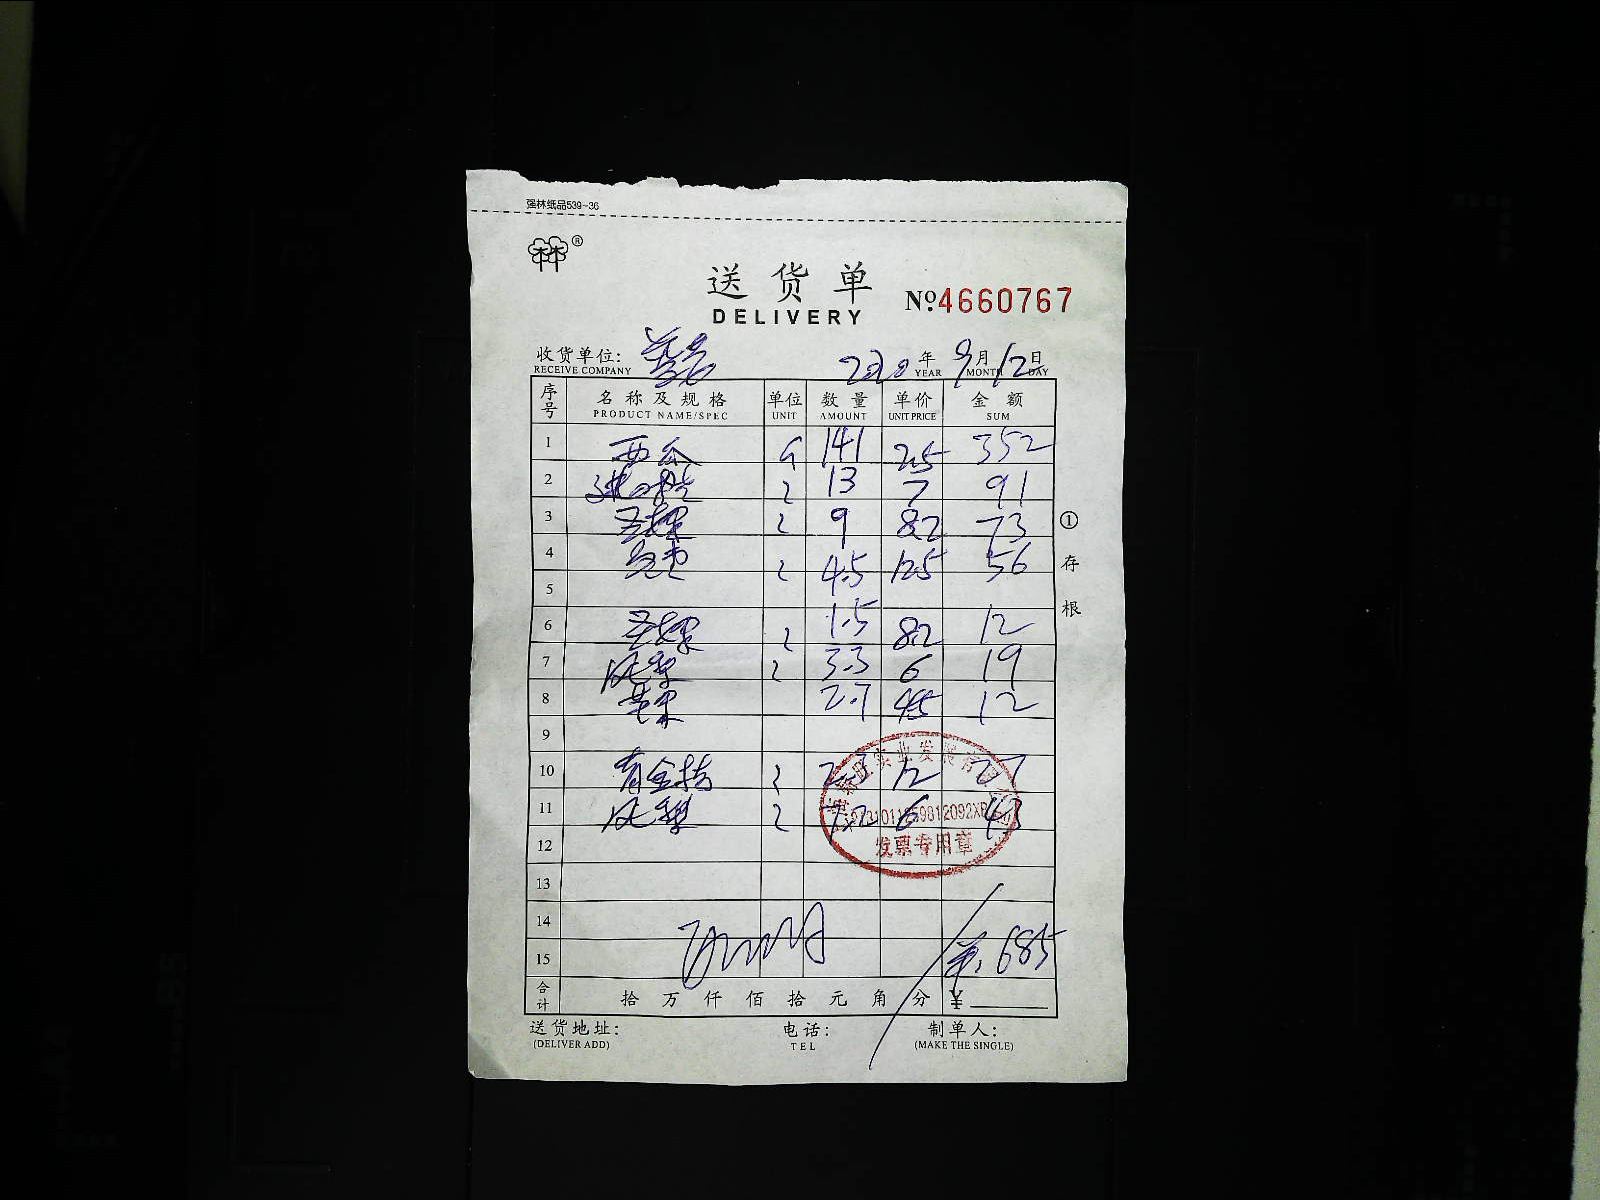 强林纸品539-36
林®
送货单
DELIVERY
№4660767
收货单位:
RECEIVE COMPANY
2020年9月12日
YEAR MONTH DAY
序号 名称及规格 单位 数量 单价 金额
PRODUCT NAME/SPEC UNIT AMOUNT UNIT PRICE SUM
1 西瓜 141 2.5 352
2 13 7 91
3 9 8.2 73
4 4.5 12.5 56
5
6 1.5 8.2 12
7 3.3 6 19
8 苹果 2.7 4.5 12
9
10 12
11 7.2 6 43
12
13
14
15 685
①存根
实业发展有
发票专用章
合计 拾万仟佰拾元角分 ¥
送货地址: 电话: 制单人:
(DELIVER ADD) TEL (MAKE THE SINGLE)